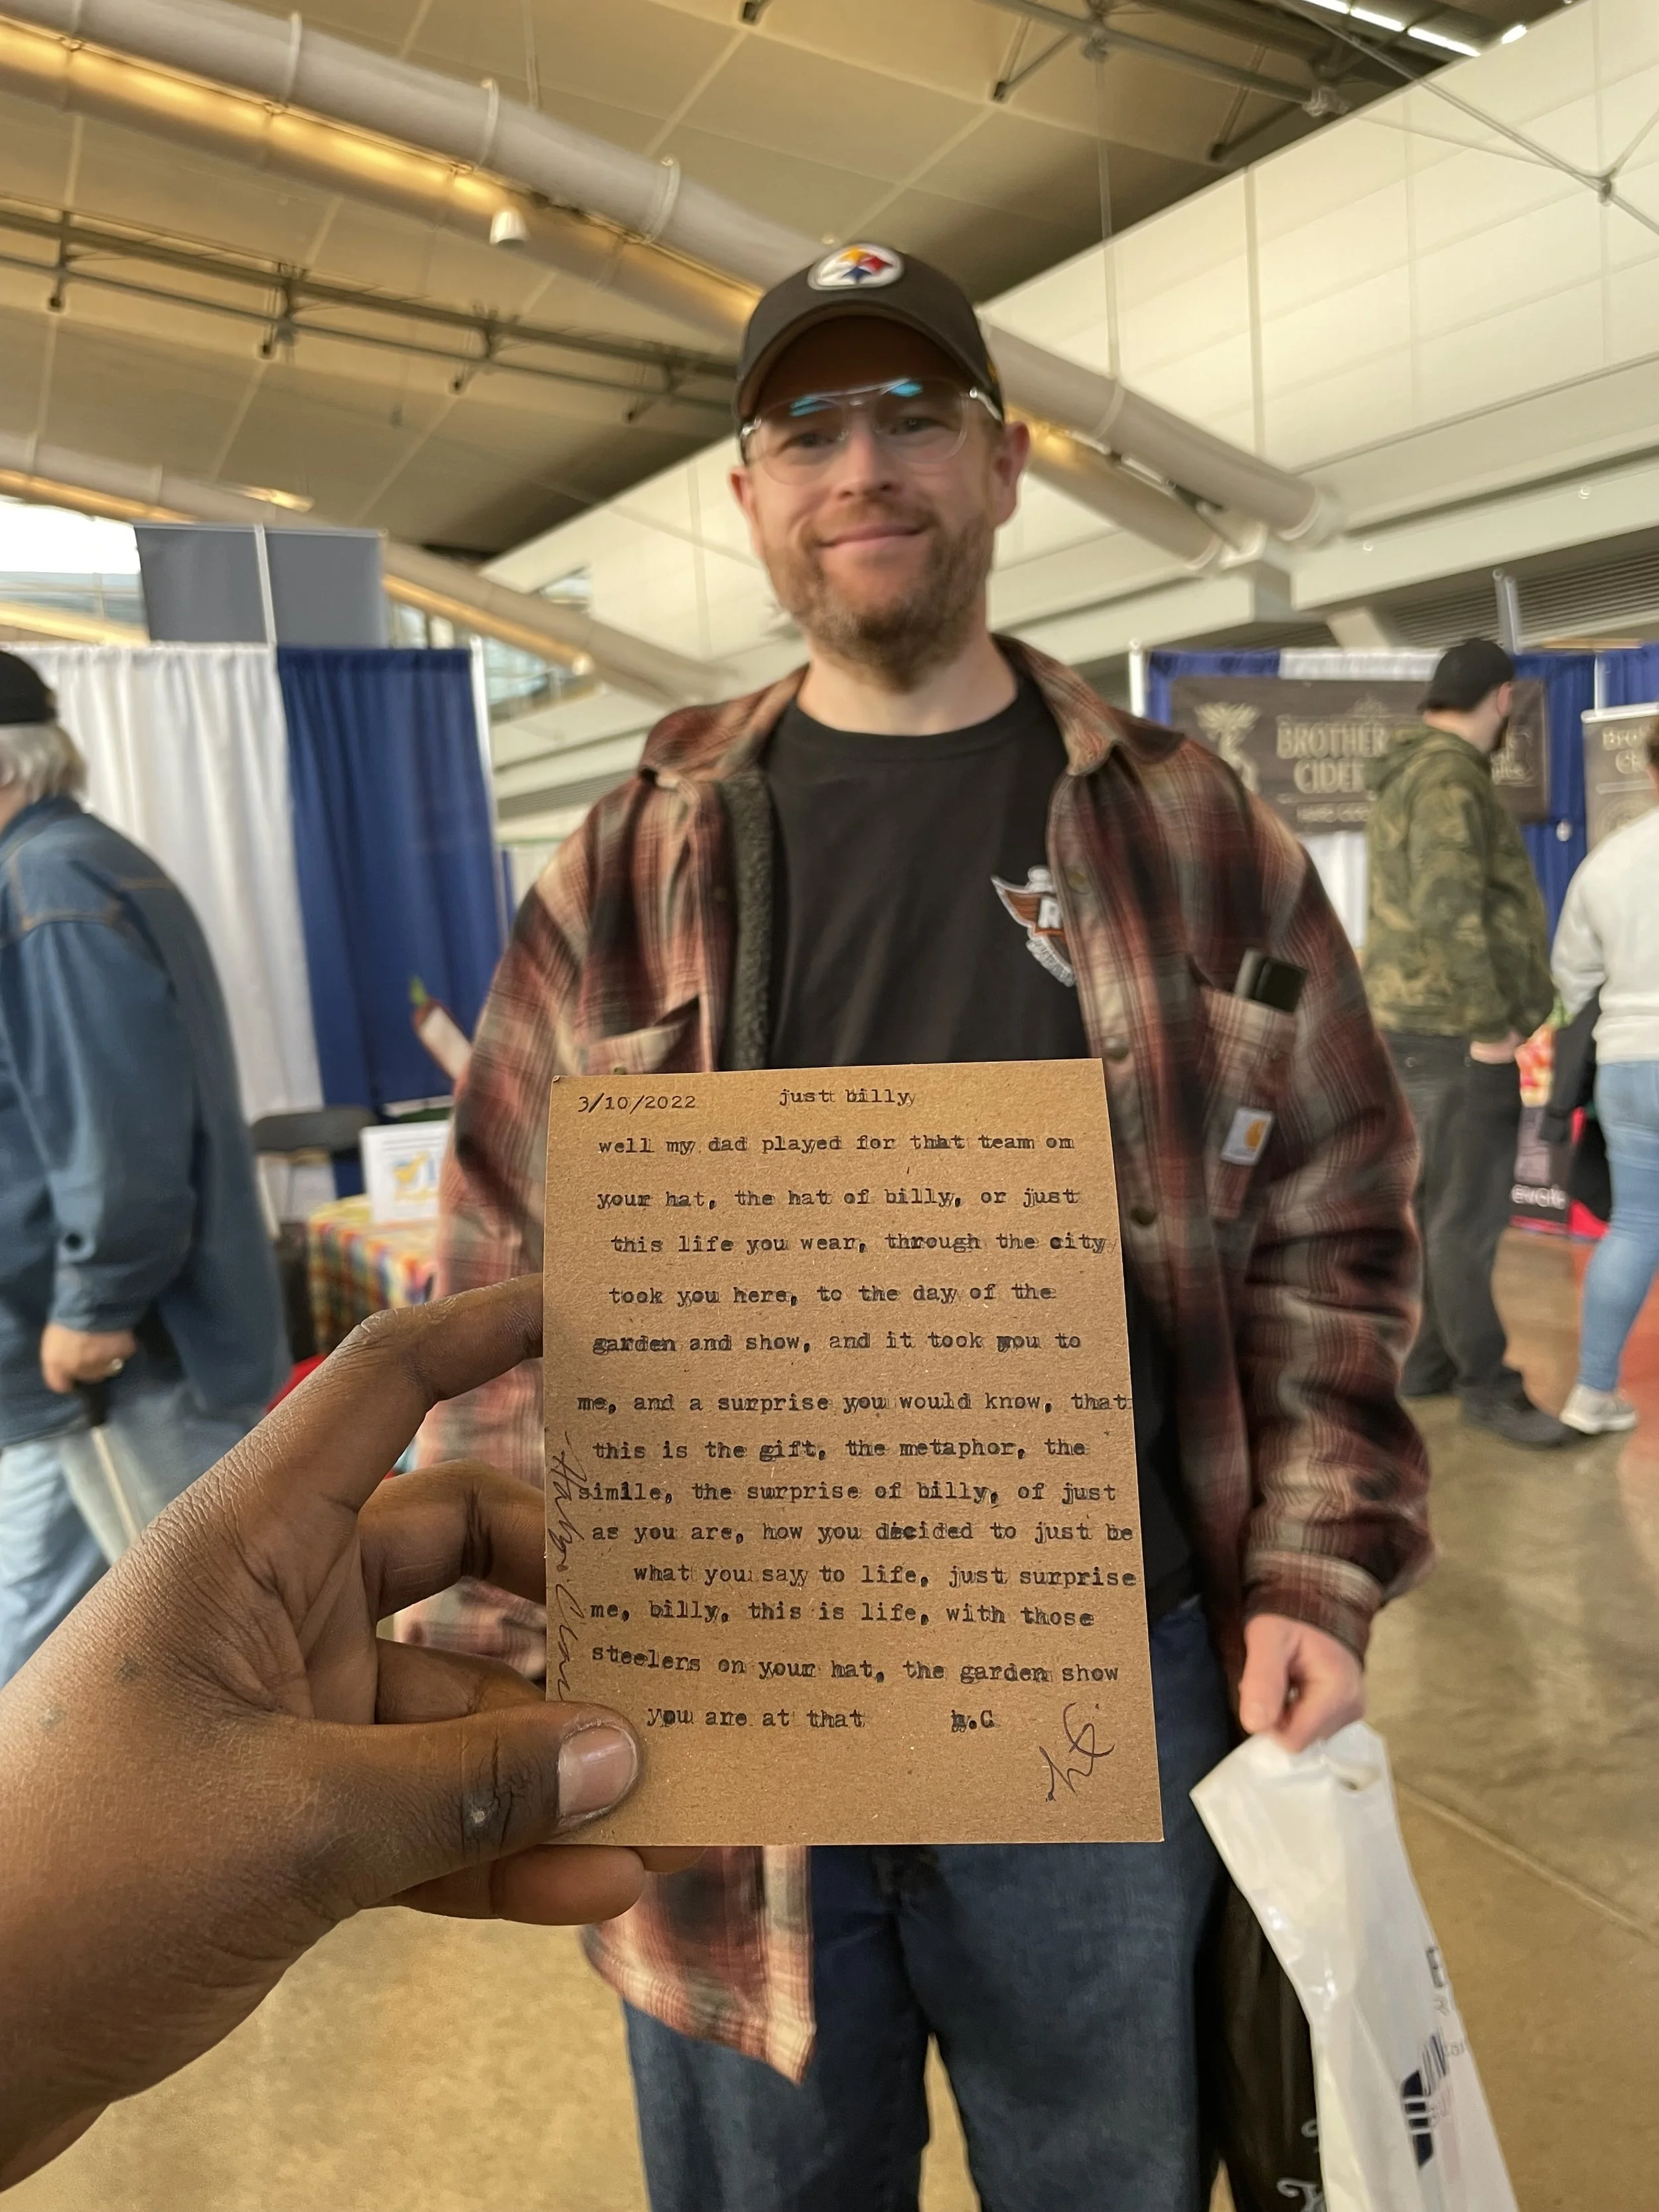 3/10/2022 just billy
well my dad played for that team on
your hat, the hat of billy, or just
this life you wear, through the city
took you here, to the day of the
garden and show, and it took you to
me, and a surprise you would know, that
this is the gift, the metaphor, the
simile, the surprise of billy, of just
as you are, how you decided to just be
what you say to life, just surprise
me, billy, this is life, with those
steelers on your hat, the garden show
you are at that h.C
BROTHER
CIDER